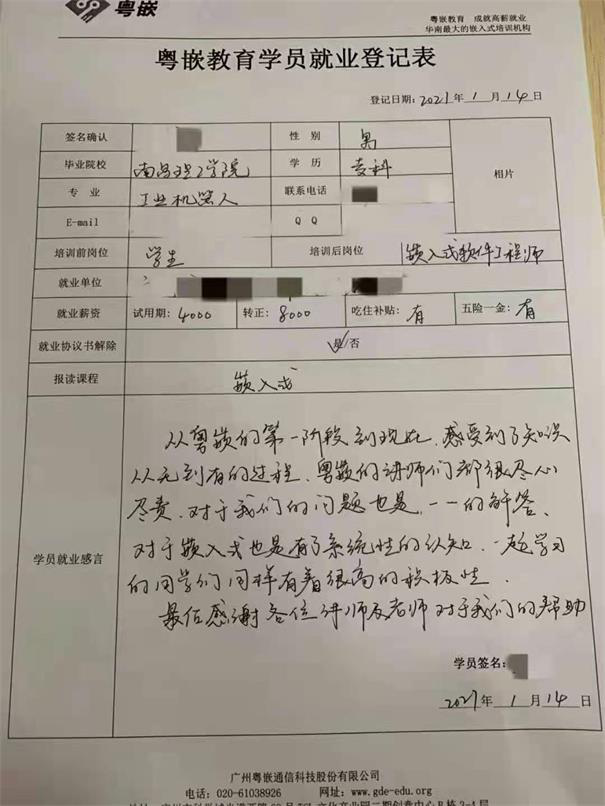 粤嵌
粤嵌教育 成就高薪就业
华南最大的嵌入式培训机构
粤嵌教育学员就业登记表
登记日期：2021年1月14日
签名确认 性 别 男 相片
毕业院校 南昌理工学院 学 历 专科
专 业 工业机器人 联系电话
E-mail Q Q
培训前岗位 学生 培训后岗位 嵌入式软件工程师
就业单位
就业薪资 试用期：4000 转正：8000 吃住补贴：有 五险一金：有
就业协议书解除 是/否
报读课程 嵌入式
学员就业感言
从粤嵌的第一阶段到现在，感受到了知识
从无到有的过程，粤嵌的讲师们都很尽心
尽责，对于我们的问题也是，一一的解答、
对于嵌入式也是有了系统性的认知，一起学习
的同学们同样有着很高的积极性．
最后感谢各位讲师及老师对于我们的帮助
学员签名：
2021年1月14日
广州粤嵌通信科技股份有限公司
电话：020-61038926 网址：www.gde-edu.org